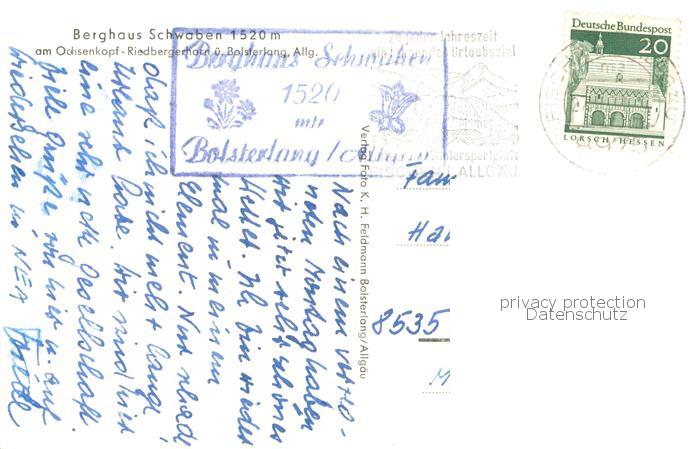 Berghaus Schwaben 1520 m
am Ochsenkopf - Riedbergerhorn ü. Bolsterlang, Allg.
Berghaus Schwaben
1520
mtr
Bolsterlang / Allgäu
Zu jeder Jahreszeit
Urlaubsziel
Wintersportplatz
ALLGÄU
Deutsche Bundespost
20
LORSCH/HESSEN
Verlag Foto K. H. Feldmann Bolsterlang/Allgäu
Nach einem
Montag haben
wir jetzt sehr schönes
Wetter. Ich bin wieder
mal in meinem
Element. Nur schade,
daß ich nicht mehr lange
Urlaub habe. Wir sind hier
eine sehr nette Gesellschaft.
Viele Grüße von hier u. auf
Wiedersehen in NEA
Fam
Ha
8535
M
privacy protection
Datenschutz